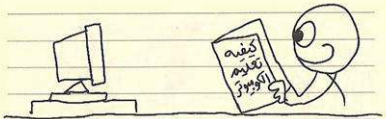 كيفيه
تعليم
الكمبيوتر